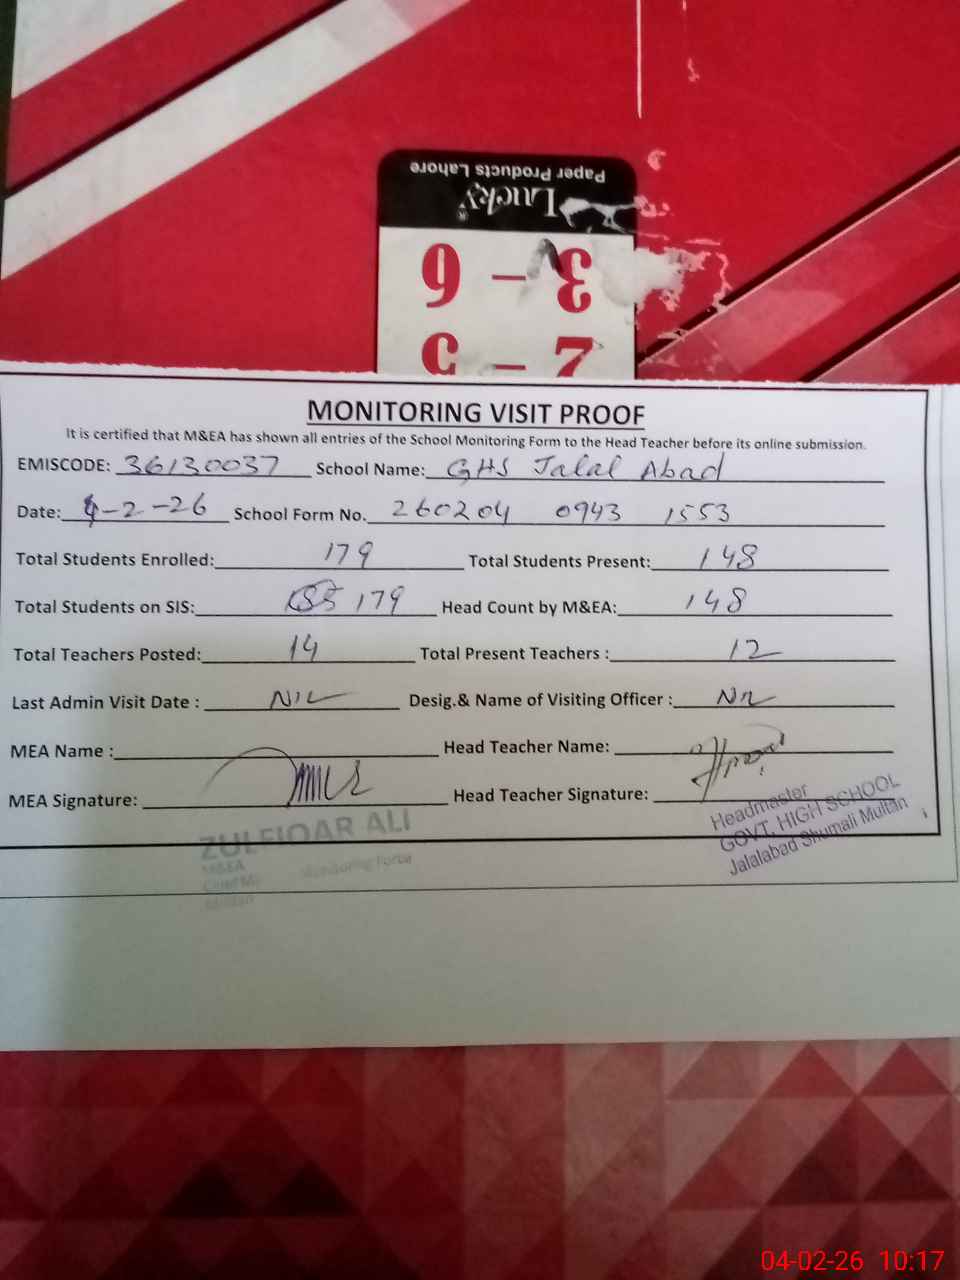 Paper Products Lahore
Lucky®
3 - 6
7 - 5
MONITORING VISIT PROOF
It is certified that M&EA has shown all entries of the School Monitoring Form to the Head Teacher before its online submission.
EMISCODE: 36130037 School Name: GHS Jalal Abad
Date: 4-2-26 School Form No. 260204 0943 1553
Total Students Enrolled: 179 Total Students Present: 148
Total Students on SIS: 179 Head Count by M&EA: 148
Total Teachers Posted: 14 Total Present Teachers : 12
Last Admin Visit Date : NIL Desig.& Name of Visiting Officer : NIL
MEA Name : Head Teacher Name:
MEA Signature: Head Teacher Signature:
ZULFIQAR ALI
M&EA
Monitoring Force
Multan
Headmaster
GOVT. HIGH SCHOOL
Jalalabad Shumali Multan
04-02-26 10:17